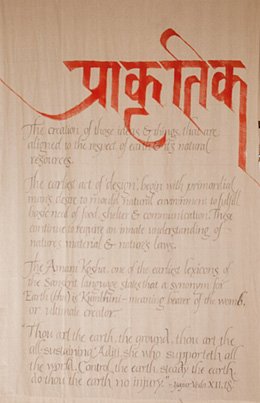 प्राकृतिक
The creation of those ideas & things that are
aligned to the respect of earth & its natural
resources.
The earliest act of design, begin with primordial
man's desire to mould natural environment to fulfill
basic need of food shelter & communication. These
continue to require an innate understanding of
nature's material & nature's laws.
The Amara Kosha, one of the earliest lexicons of
the Sanskrit language states that a synonym for
Earth (bhu) is Kumbhini - meaning bearer of the womb,
or ultimate creator.
"Thou art the earth, the ground, thou art the
all-sustaining Aditi she who supporteth all
the world. Control the earth, steady the earth
do thou the earth no injury." - Yajur Veda XIII.18